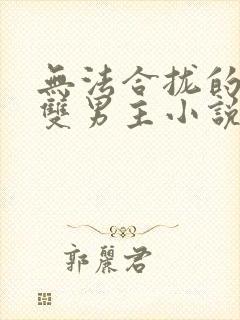 無法合拢的
雙男主小說
郭麗君